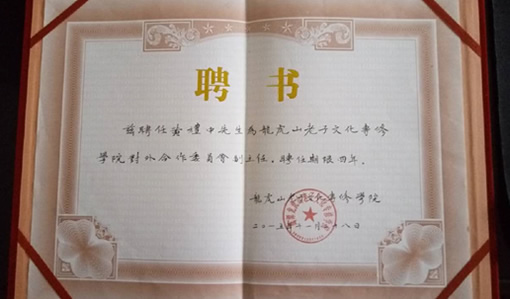 聘书
兹聘任徐礼中先生为龙虎山老子文化专修
学院对外合作委员会副主任,聘任期限四年。
龙虎山老子文化专修学院
二〇一五年十一月十八日